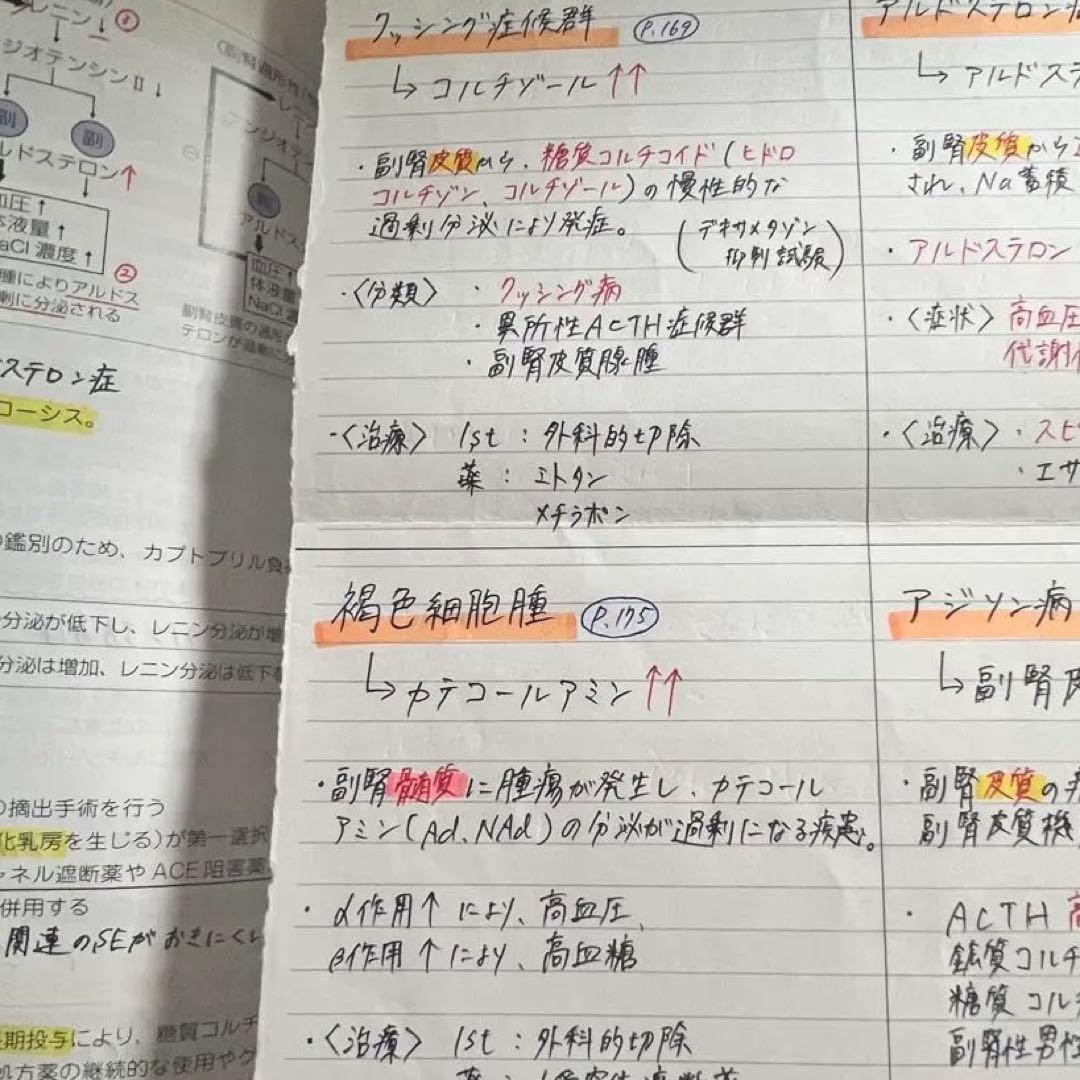 レニン ①
ジオテンシンⅡ↓
副 副
ルドステロン↑
血圧↑
体液量↑
aCl濃度↑
②
腫によりアルドス
剰に分泌される
ステロン症
ローシス。
鑑別のため、カプトプリル負
分泌が低下し、レニン分泌が増
分泌は増加、レニン分泌は低下
摘出手術を行う
化乳房を生じる)が第一選択
ャネル遮断薬やACE阻害薬
併用する
関連のSEがおきにくい
期投与により、糖質コルチ
処方薬の継続的な使用やク
レニン
アンジオテ
副
アルドス
血圧↑
体液量
NaCl
クッシング症候群 P.169
↳コルチゾール↑↑
・副腎皮質から、糖質コルチコイド(ヒドロ
コルチゾン、コルチゾール)の慢性的な
過剰分泌により発症。
(デキサメタゾン
抑制試験)
・〈分類〉 ・クッシング病
・異所性ACTH症候群
・副腎皮質腺腫
・〈治療〉 1st:外科的切除
薬:ミトタン
メチラポン
アルドステロン
↳アルドステ
・副腎皮質から
され、Na蓄積
・アルドステロン
・〈症状〉高血圧
代謝
・〈治療〉・スピ
・エサ
褐色細胞腫 P.175
↳カテコールアミン↑↑
・副腎髄質に腫瘍が発生し、カテコール
アミン(Ad、NAd)の分泌が過剰になる疾患。
・α作用↑により、高血圧、
β作用↑により、高血糖
・〈治療〉 1st:外科的切除
アジソン病
↳副腎皮
・副腎皮質の
副腎皮質機
・ACTH
鉱質コルチ
糖質コル
副腎性男性